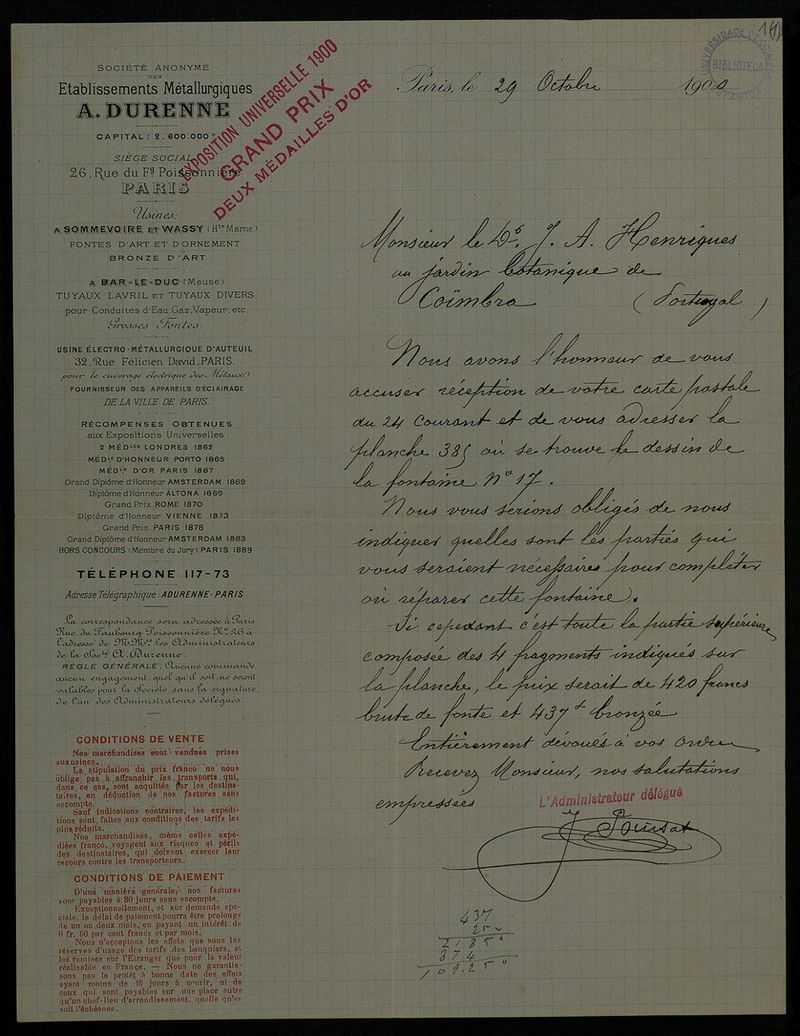 SOCIÉTÉ ANONYME
DES
Etablissements Métallurgiques
A. DURENNE
CAPITAL: 2.600.000 f
SIÈGE SOCIAL
26, Rue du Fg Poissonnière
PARIS
Usines:
A SOMMEVOIRE ET WASSY (Hte Marne)
FONTES D'ART ET D'ORNEMENT
BRONZE D'ART
A BAR-LE-DUC (Meuse)
TUYAUX LAVRIL ET TUYAUX DIVERS
pour Conduites d'Eau, Gaz, Vapeur, etc.
Grosses Fontes.
USINE ÉLECTRO-MÉTALLURGIQUE D'AUTEUIL
32, Rue Félicien David, PARIS.
pour le cuivrage électrique des Métaux
FOURNISSEUR DES APPAREILS D'ÉCLAIRAGE
DE LA VILLE DE PARIS.
RÉCOMPENSES OBTENUES
aux Expositions Universelles
2 MÉDles LONDRES 1862
MÉDle D'HONNEUR PORTO 1865
MÉDle D'OR PARIS 1867
Grand Diplôme d'Honneur AMSTERDAM 1869
Diplôme d'Honneur ALTONA 1869
Grand Prix ROME 1870
Diplôme d'Honneur VIENNE 1873
Grand Prix PARIS 1878
Grand Diplôme d'Honneur AMSTERDAM 1883
HORS CONCOURS (Membre du Jury) PARIS 1889
TÉLÉPHONE 117-73
Adresse Télégraphique: ADURENNE-PARIS
La correspondance sera adressée à Paris
Rue du Faubourg Poissonnière No 26 à
l'adresse de M.Mrs les Administrateurs
de la Socté A. Durenne.
RÈGLE GÉNÉRALE. Aucune commande
aucun engagement quel qu'il soit, ne seront
valables pour la Société sans la signature
de l'un des Administrateurs délégués.
CONDITIONS DE VENTE
Nos marchandises sont vendues prises
aux usines.
La stipulation du prix franco ne nous
oblige pas à affranchir les transports qui,
dans ce cas, sont acquittés par les destina-
taires, en déduction de nos factures sans
escompte.
Sauf indications contraires, les expédi-
tions sont faites aux conditions des tarifs les
plus réduits.
Nos marchandises, même celles expé-
diées franco, voyagent aux risques et périls
des destinataires, qui doivent exercer leur
recours contre les transporteurs.
CONDITIONS DE PAIEMENT
D'une manière générale, nos factures
sont payables à 30 jours sans escompte.
Exceptionnellement, et sur demande spé-
ciale, le délai de paiement pourra être prolongé
de un ou deux mois, en payant un intérêt de
0 fr. 50 par cent francs et par mois.
Nous n'acceptons les effets que sous les
réserves d'usage des tarifs des banquiers, et
les remises sur l'Etranger que pour la valeur
réalisable en France. — Nous ne garantis-
sons pas le protêt à bonne date des effets
ayant moins de 15 jours à courir, ni de
ceux qui sont payables sur une place autre
qu'un chef-lieu d'arrondissement, quelle qu'en
soit l'échéance.
EXPOSITION UNIVERSELLE 1900
GRAND PRIX
DEUX MÉDAILLES D'OR
BIBLIOTECA
Paris, le 29 Octobre 1900
Monsieur le Dr. J. A. Henriques
au jardin botanique de
Coïmbra (Portugal)
Nous avons l'honneur de vous
accuser réception de votre carte postale
du 24 Courant et de vous adresser la
planche 385 où se trouve le dessin de
la fontaine No 17.
Nous vous serions obligés de nous
indiquer quelles sont les parties qui
vous seraient nécessaires pour compléter
où réparer cette fontaine.
Si cependant c'est toute la partie supérieure
composée des 4 fragments indiqués sur
la planche, le prix serait de 420 francs
brute de fonte et 437 bronzée
Entièrement dévoués à vos ordres
Recevez Monsieur, nos salutations
empressées
L'Administrateur délégué
437
250
2185
874
109.250